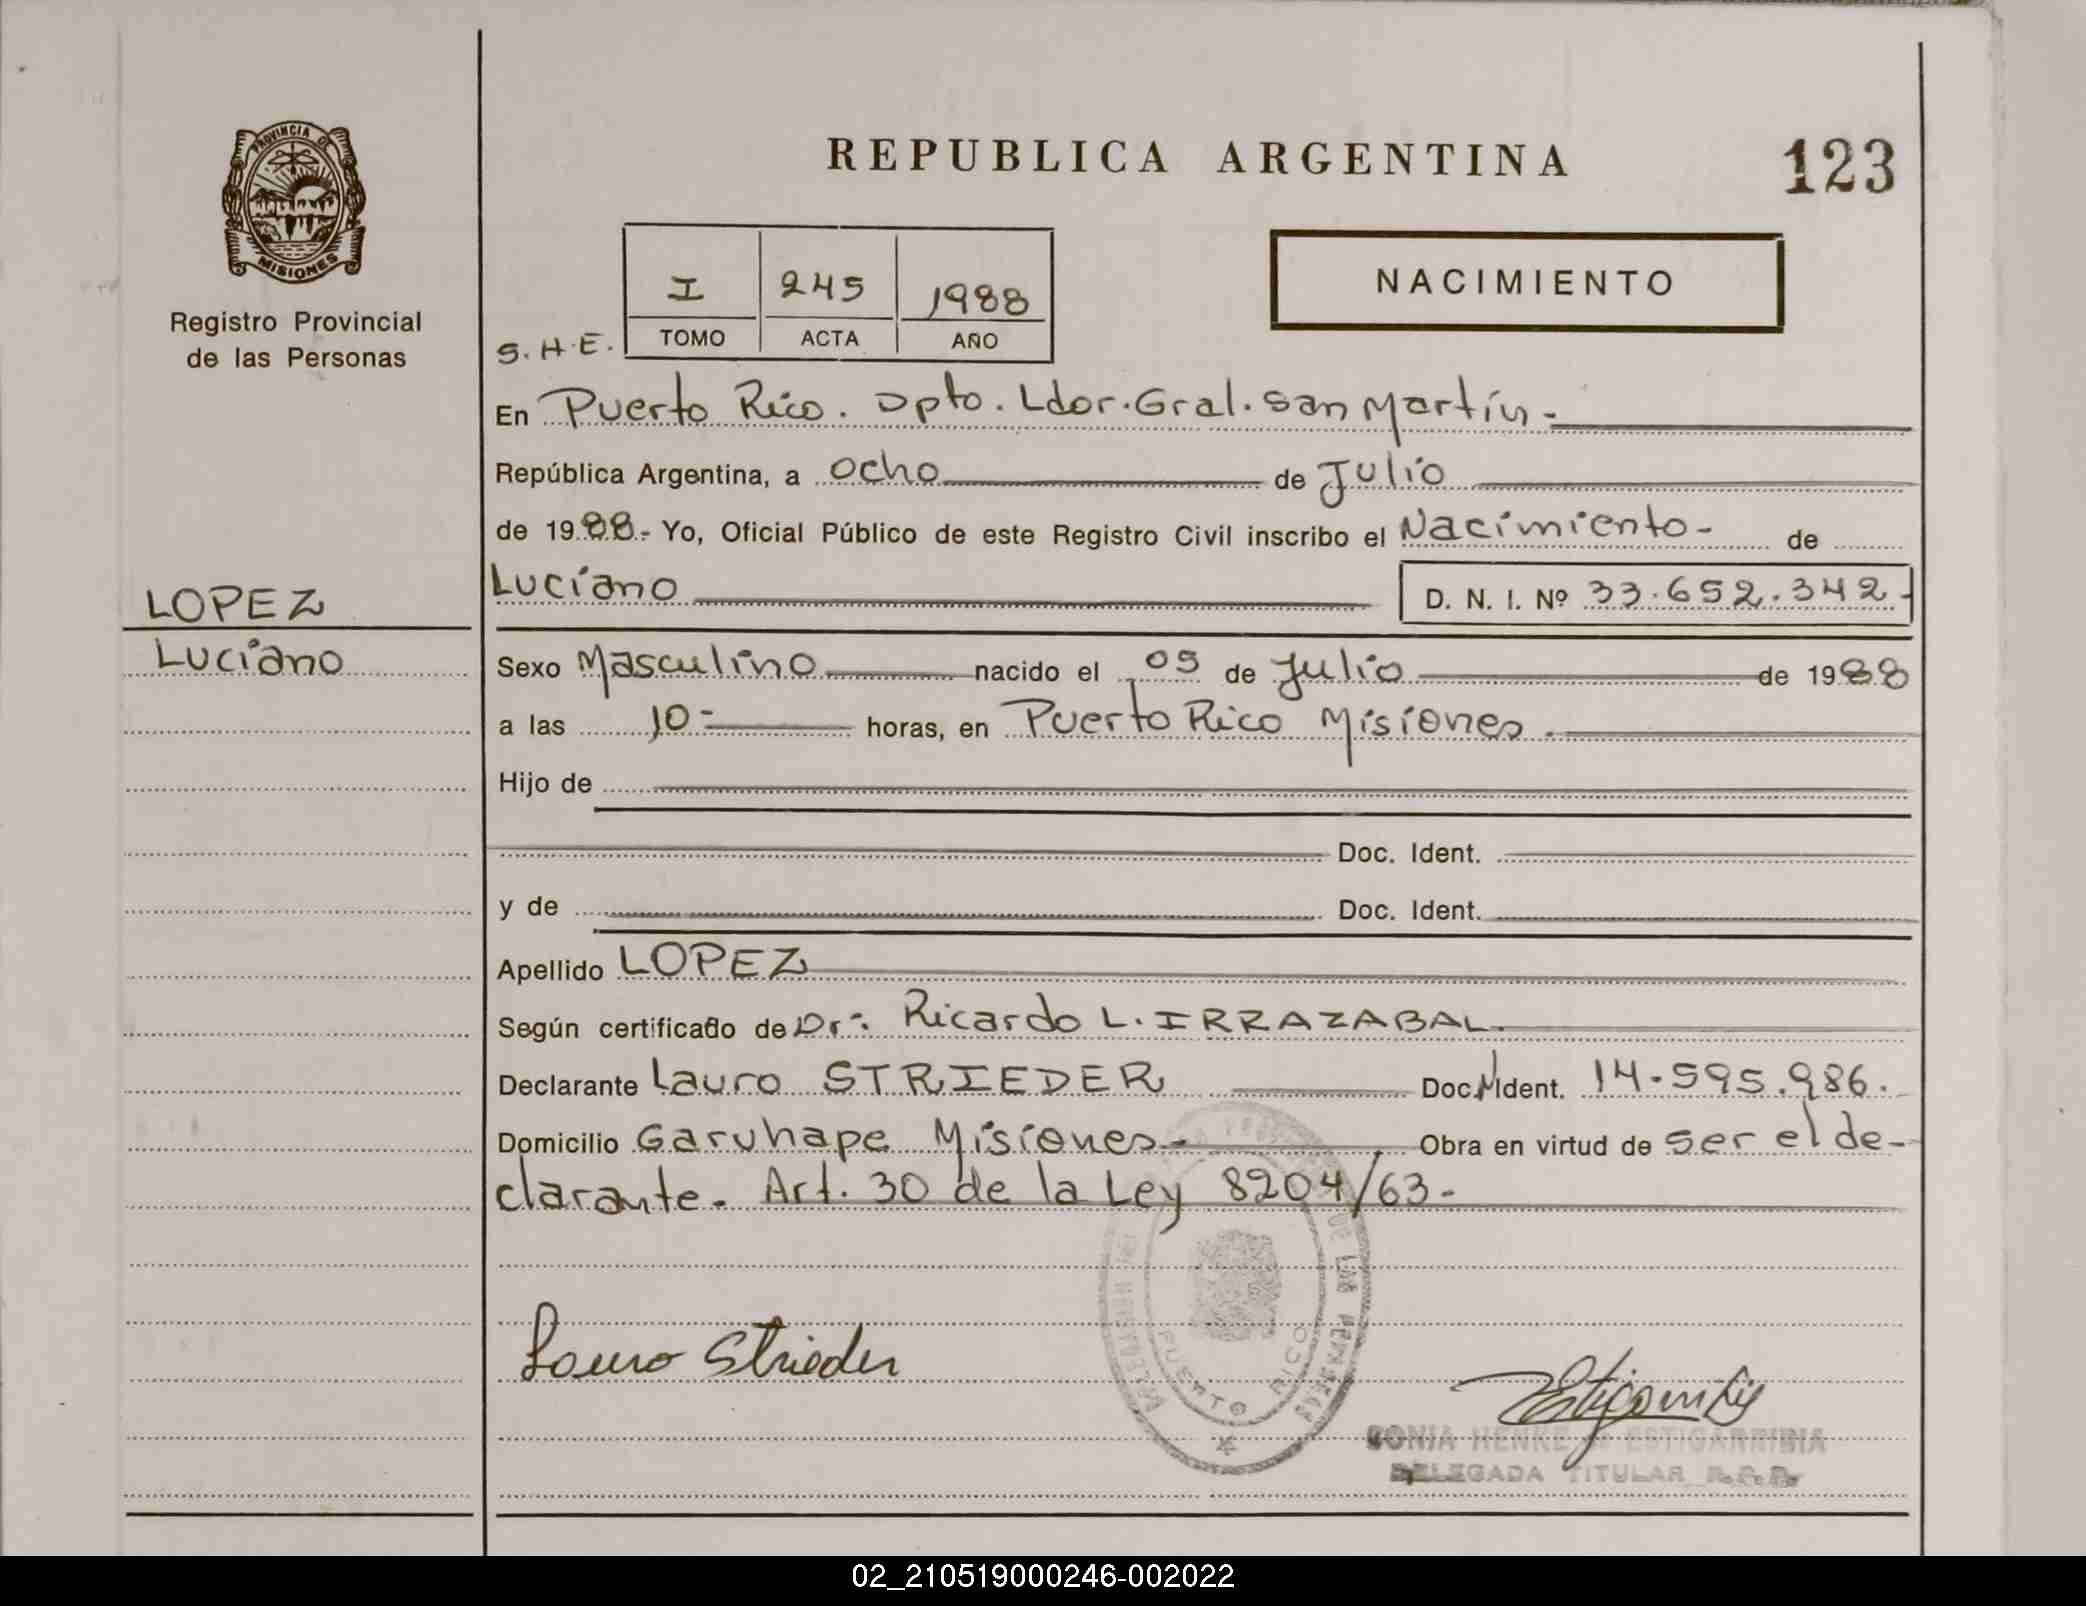 REPUBLICA ARGENTINA
123
PROVINCIA DE
MISIONES
Registro Provincial
de las Personas
I 245 1988
TOMO ACTA AÑO
NACIMIENTO
S.H.E.
En Puerto Rico. Dpto. Ldor. Gral. San Martín -
República Argentina, a ocho de Julio
de 1988.- Yo, Oficial Público de este Registro Civil inscribo el Nacimiento - de
Luciano D. N. I. Nº 33.652.342-
LOPEZ
Luciano
Sexo Masculino nacido el 05 de Julio de 1988
a las 10- horas, en Puerto Rico Misiones.
Hijo de
Doc. Ident.
y de Doc. Ident.
Apellido LOPEZ
Según certificado de Dr. Ricardo L. IRRAZABAL.
Declarante Lauro STRIEDER Doc. Ident. 14.595.986.
Domicilio Garuhape Misiones.- Obra en virtud de ser el de-
clarante. Art. 30 de la Ley 8204/63-
Lauro Strieder
DE LAS PERSONAS
PUERTO RICO
SONIA HENKE de ESTIGARRIBIA
DELEGADA TITULAR R.P.P.
02_210519000246-002022